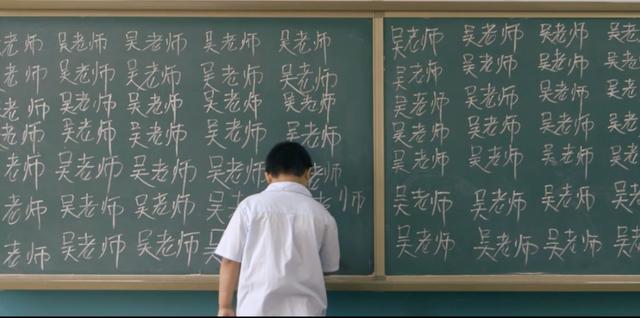 老师 吴老师 吴老师 吴老师 吴老师
老师 吴老师 吴老师 吴老师 吴老师
老师 吴老师 吴老师 吴老师 吴老师
老师 吴老师 吴老师 吴老师 吴老师
老师 吴老师 吴老师 吴老师
老师 吴老师 吴老师 吴 师
老师 吴老师 吴老师 吴
吴老师 吴老师 吴老师 吴老
吴老师 吴老师 吴老师 吴老师
吴老师 吴老师 吴老师 吴老师
吴老师 吴老师 吴老师 吴老师
吴老师 吴老师 吴老师 吴老
吴老师 吴老师 吴老师 吴老
吴老师 吴老师 吴老师 吴老